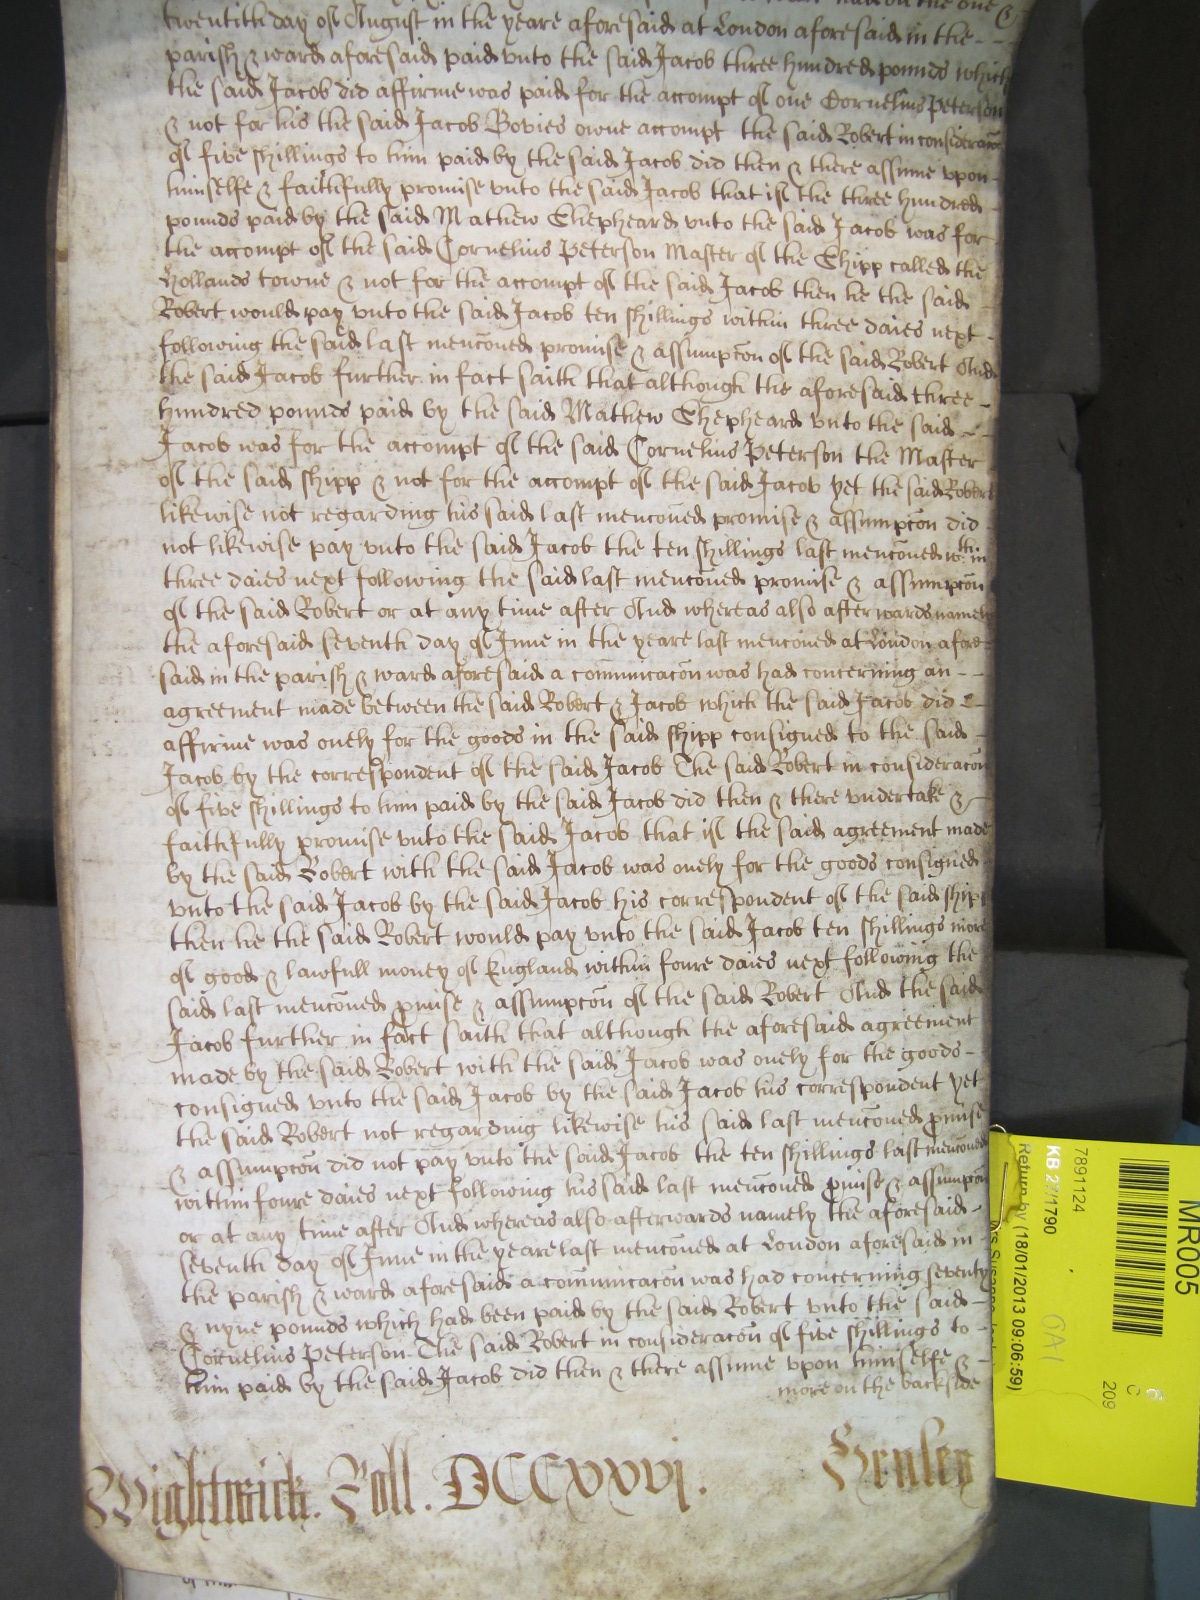 made on the one &
twentith day of August in the yeare aforesaid at London aforesaid in the - -
parish & ward aforesaid paid vnto the said Jacob three hundred pounds which
the said Jacob did affirme was paid for the accompt of one Cornelius Peterson
& not for his the said Jacob Bovies owne accompt the said Robert in consideracon
of five shillings to him paid by the said Jacob did then & there assume vpon -
himselfe & faithfully promise vnto the said Jacob that if the three hundred -
pounds paid by the said Mathew Shepheard vnto the said Jacob was for -
the accompt of the said Cornelius Peterson Master of the Shipp called the
Hollands towne & not for the accompt of the said Jacob then he the said -
Robert would pay vnto the said Jacob ten shillings within three daies next -
following the said last menconed promise & assumpcon of the said Robert And
the said Jacob further in fact saith that although the aforesaid three -
hundred pounds paid by the said Mathew Shepheard vnto the said - -
Jacob was for the accompt of the said Cornelius Peterson the Master
of the said shipp & not for the accompt of the said Jacob yet the said Robert
likewise not regarding his said last menconed promise & assumpcon did -
not likewise pay vnto the said Jacob the ten shillings last menconed within
three daies next following the said last menconed promise & assumpcon
of the said Robert or at any time after And whereas also afterwards namely
the aforesaid seventh day of June in the yeare last menconed at London afore
said in the parish & ward aforesaid a communicacon was had concerning an - -
agreement made between the said Robert & Jacob which the said Jacob did -
affirme was onely for the goods in the said shipp consigned to the said -
Jacob by the correspondent of the said Jacob The said Robert in consideracon
of five shillings to him paid by the said Jacob did then & there vndertake & -
faithfully promise vnto the said Jacob that if the said agreement made
by the said Robert with the said Jacob was onely for the goods consigned -
vnto the said Jacob by the said Jacob his correspondent of the said shipp
then he the said Robert would pay vnto the said Jacob ten shillings more
of good & lawfull money of England within foure daies next following the
said last menconed pmise & assumpcon of the said Robert And the said
Jacob further in fact saith that although the aforesaid agreement
made by the said Robert with the said Jacob was onely for the goods -
consigned vnto the said Jacob by the said Jacob his correspondent yet
the said Robert not regarding likewise his said last menconed pmise
& assumpcon did not pay vnto the said Jacob the ten shillings last menconed
within foure daies next following his said last menconed pmise & assumpcon
or at any time after And whereas also afterwards namely the aforesaid -
seventh day of June in the yeare last menconed at London aforesaid in -
the parish & ward aforesaid a communicacon was had concerning seventy
& nyne pounds which had been paid by the said Robert vnto the said -
Cornelius Peterson The said Robert in consideracon of five shillings to -
him paid by the said Jacob did then & there assume vpon himselfe & -
more on the backside
Wightwick. Roll. DCCxxvj. Henley
MR005
7891124
KB 27/1790
Return by (18/01/2013 09:06:59)
C
209